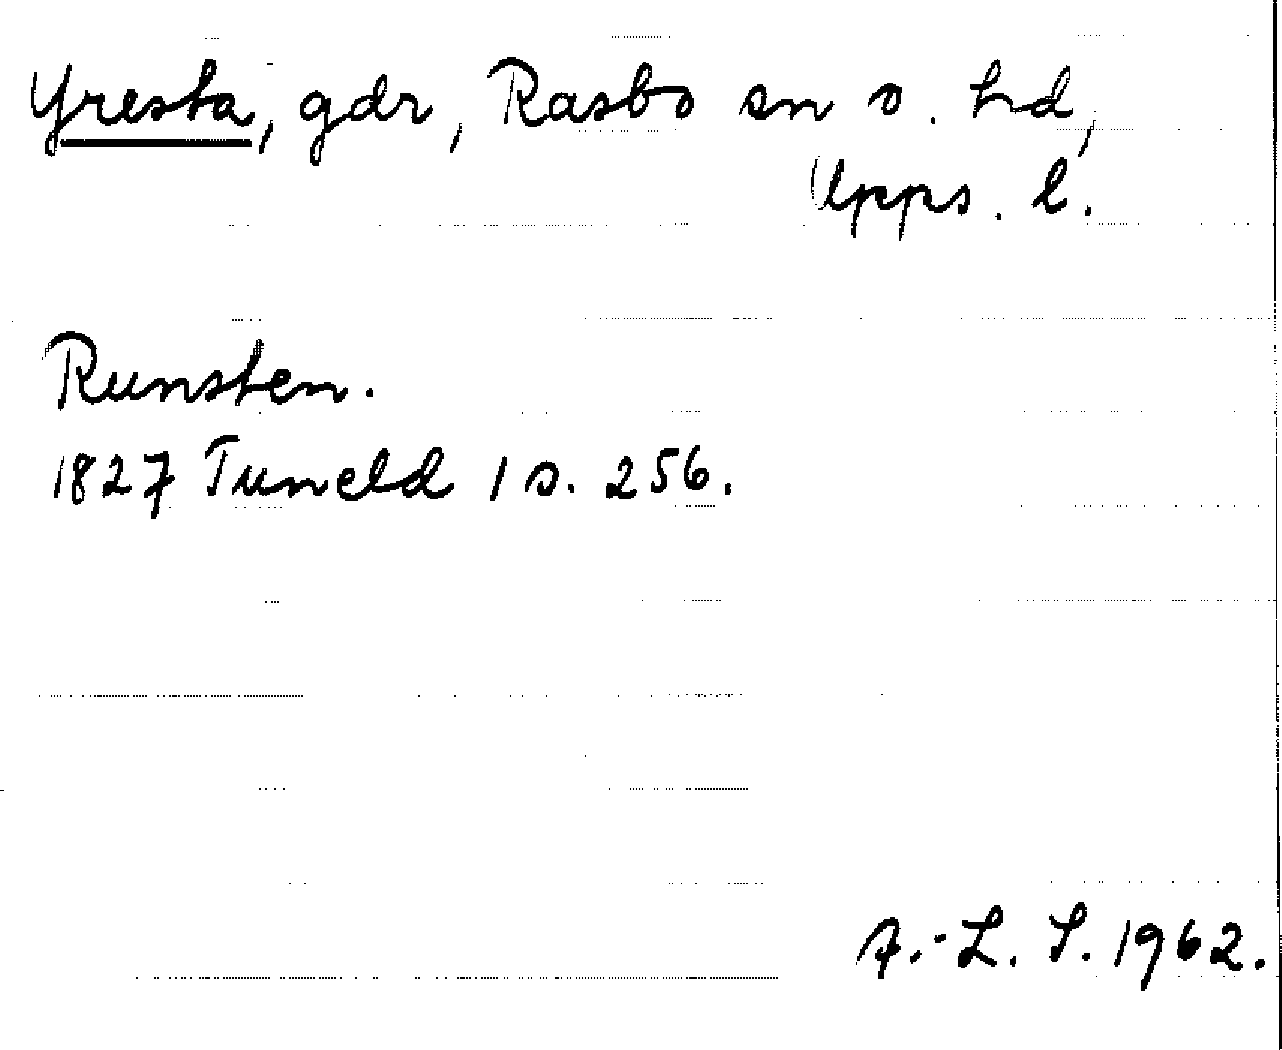 Yresta, gdr, Rasbo sn o. hd,
Upps. l.
Runsten.
1827 Tuneld 1 s. 256.
A.-L. S. 1962.